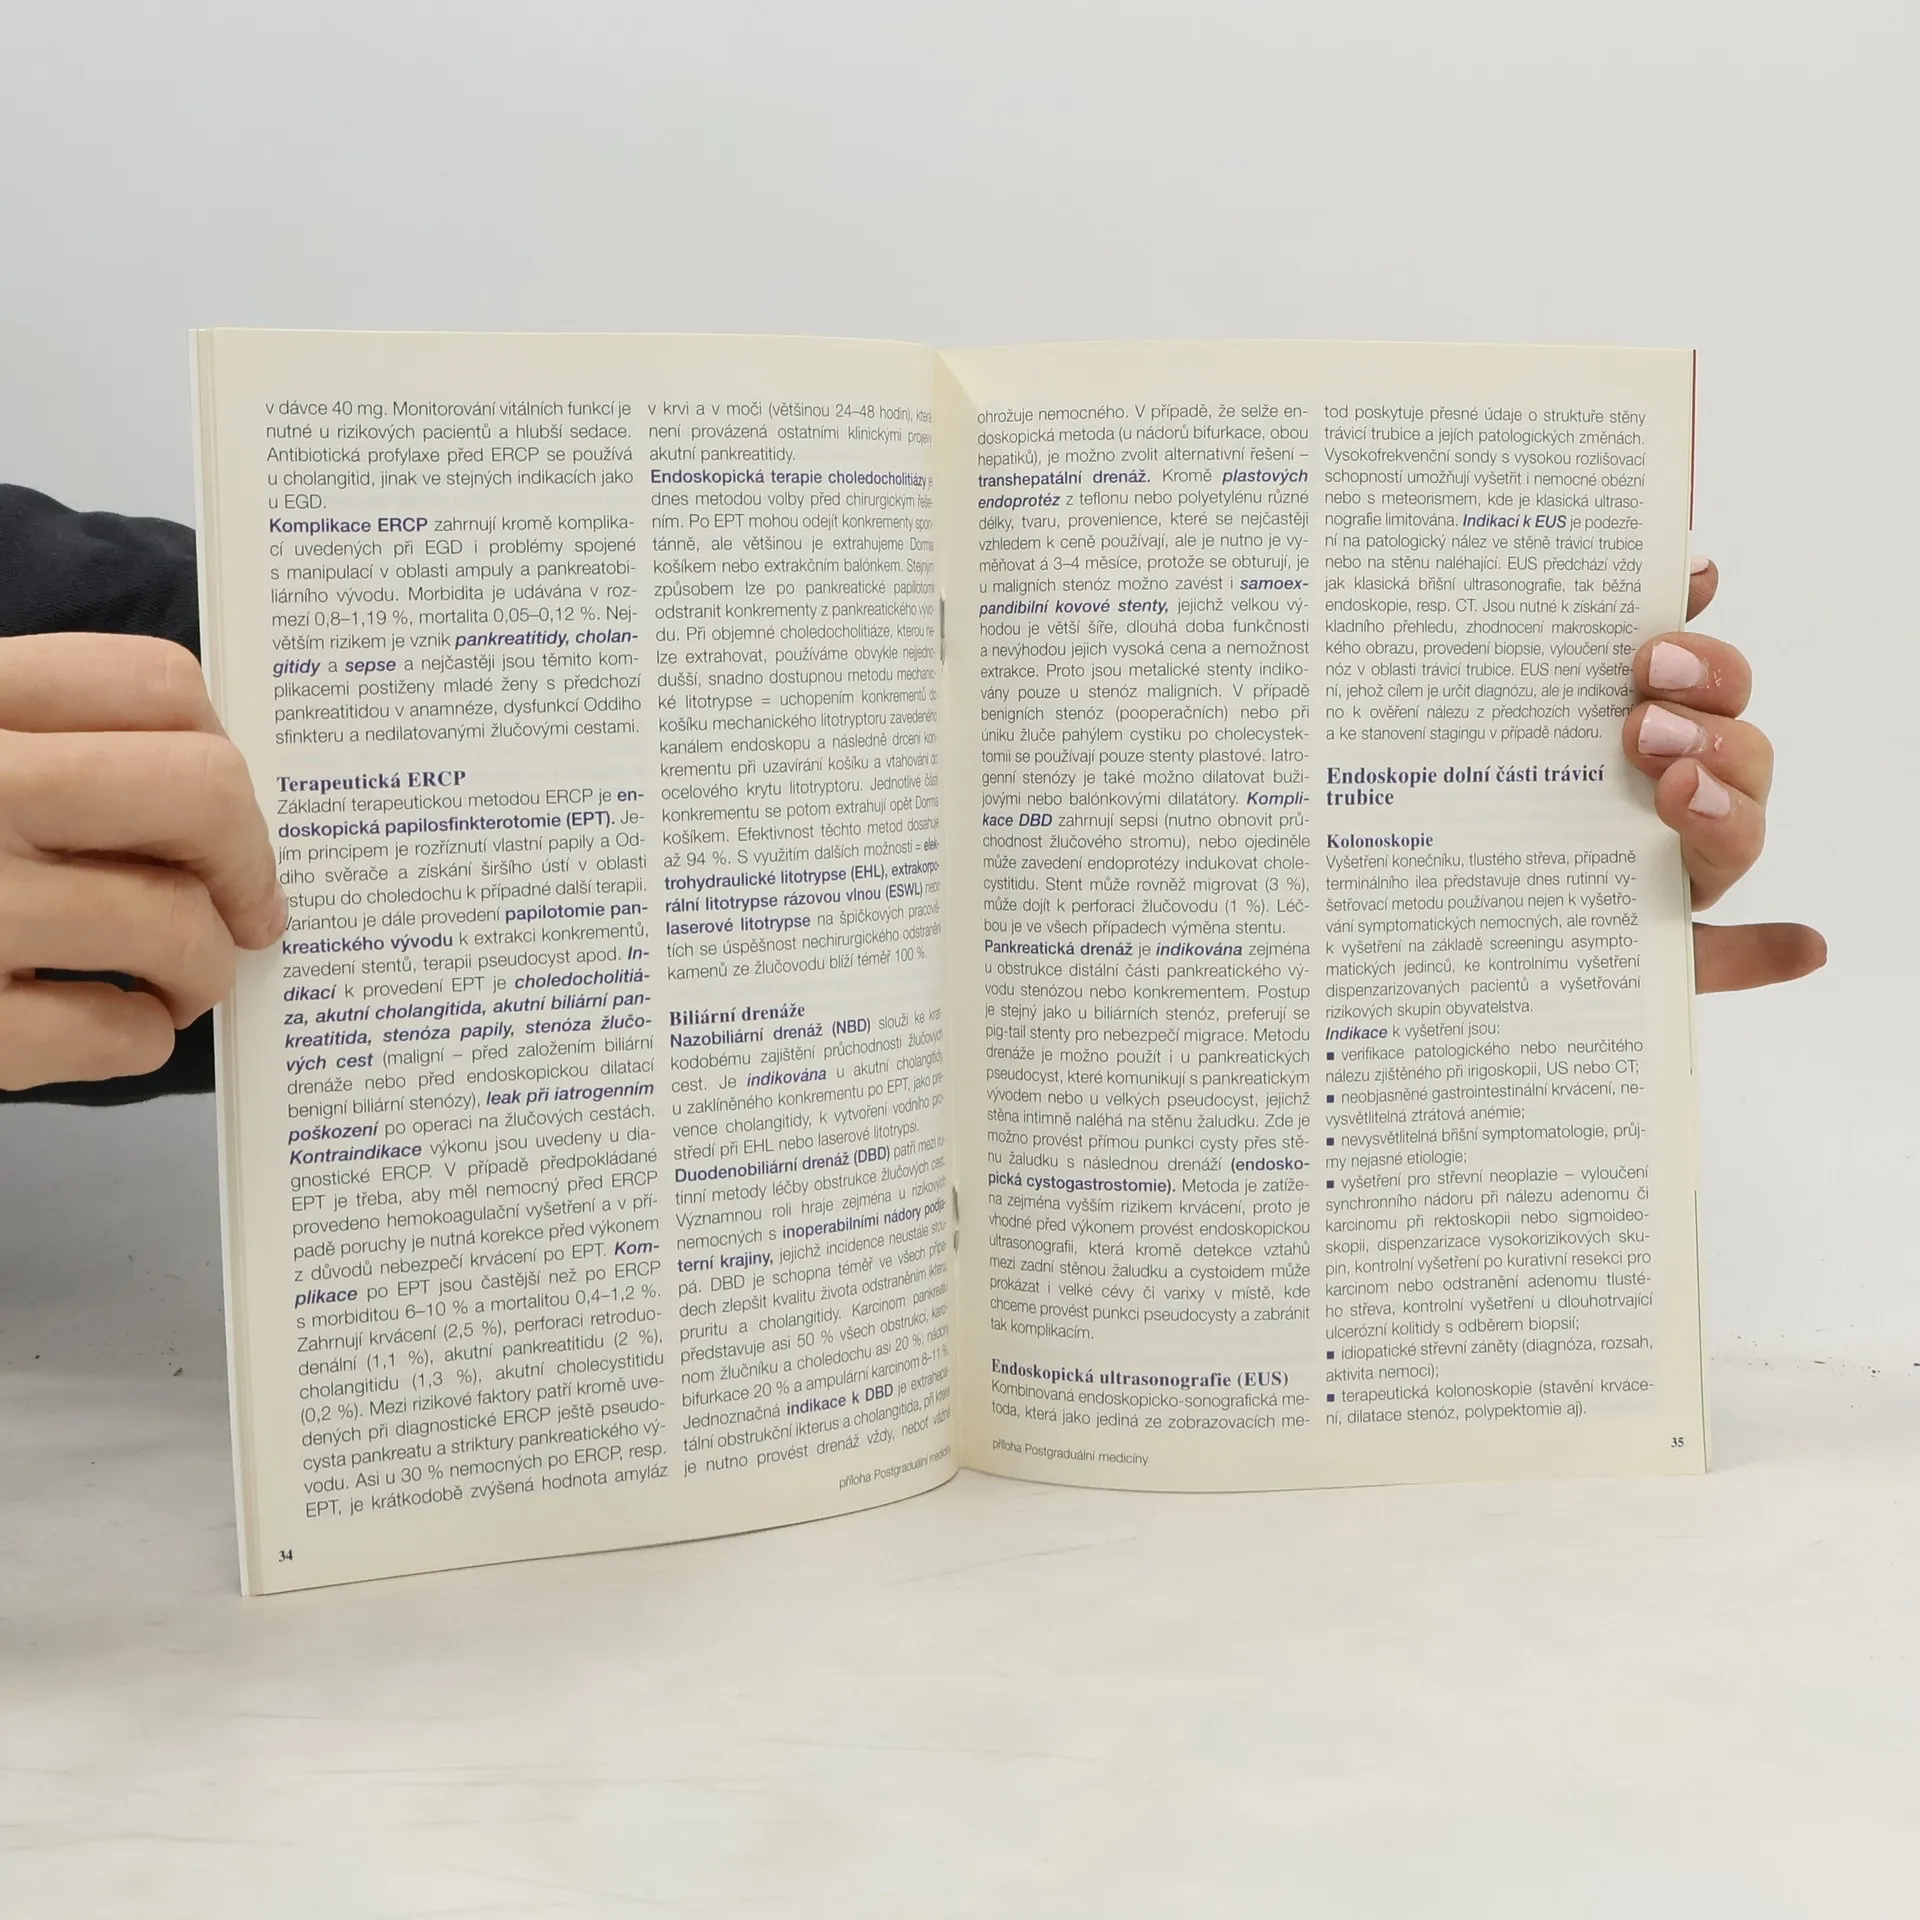 v dávce 40 mg. Monitorování vitálních funkcí je
nutné u rizikových pacientů a hlubší sedace.
Antibiotická profylaxe před ERCP se používá
u cholangitid, jinak ve stejných indikacích jako
u EGD.
Komplikace ERCP zahrnují kromě komplika-
cí uvedených při EGD i problémy spojené
s manipulací v oblasti ampuly a pankreatobi-
liárního vývodu. Morbidita je udávána v roz-
mezí 0,8–1,19 %, mortalita 0,05–0,12 %. Nej-
větším rizikem je vznik pankreatitidy, cholan-
gitidy a sepse a nejčastěji jsou těmito kom-
plikacemi postiženy mladé ženy s předchozí
pankreatitidou v anamnéze, dysfunkcí Oddiho
sfinkteru a nedilatovanými žlučovými cestami.
Terapeutická ERCP
Základní terapeutickou metodou ERCP je en-
doskopická papilosfinkterotomie (EPT). Je-
jím principem je rozříznutí vlastní papily a Od-
diho svěrače a získání širšího ústí v oblasti
vstupu do choledochu k případné další terapii.
Variantou je dále provedení papilotomie pan-
kreatického vývodu k extrakci konkrementů,
zavedení stentů, terapii pseudocyst apod. In-
dikací k provedení EPT je choledocholitiá-
za, akutní cholangitida, akutní biliární pan-
kreatitida, stenóza papily, stenóza žlučo-
vých cest (maligní – před založením biliární
drenáže nebo před endoskopickou dilatací
benigní biliární stenózy), leak při iatrogenním
poškození po operaci na žlučových cestách.
Kontraindikace výkonu jsou uvedeny u dia-
gnostické ERCP. V případě předpokládané
EPT je třeba, aby měl nemocný před ERCP
provedeno hemokoagulační vyšetření a v pří-
padě poruchy je nutná korekce před výkonem
z důvodů nebezpečí krvácení po EPT. Kom-
plikace po EPT jsou častější než po ERCP
s morbiditou 6–10 % a mortalitou 0,4–1,2 %.
Zahrnují krvácení (2,5 %), perforaci retroduo-
denální (1,1 %), akutní pankreatitidu (2 %),
cholangitidu (1,3 %), akutní cholecystitidu
(0,2 %). Mezi rizikové faktory patří kromě uve-
dených při diagnostické ERCP ještě pseudo-
cysta pankreatu a striktury pankreatického vý-
vodu. Asi u 30 % nemocných po ERCP, resp.
EPT, je krátkodobě zvýšená hodnota amyláz
34
v krvi a v moči (většinou 24–48 hodin), která
není provázená ostatními klinickými projevy
akutní pankreatitidy.
Endoskopická terapie choledocholitiázy je
dnes metodou volby před chirurgickým řeše-
ním. Po EPT mohou odejít konkrementy spon-
tánně, ale většinou je extrahujeme Dormia
košíkem nebo extrakčním balónkem. Stejným
způsobem lze po pankreatické papilotomii
odstranit konkrementy z pankreatického vývo-
du. Při objemné choledocholitiáze, kterou ne-
lze extrahovat, používáme obvykle nejjedno-
dušší, snadno dostupnou metodu mechanic-
ké litotrypse = uchopením konkrementů do
košíku mechanického litotryptoru zavedeného
kanálem endoskopu a následně drcení kon-
krementu při uzavírání košíku a vtahování do
ocelového krytu litotryptoru. Jednotlivé části
konkrementu se potom extrahují opět Dormia
košíkem. Efektivnost těchto metod dosahuje
až 94 %. S využitím dalších možností = elek-
trohydraulické litotrypse (EHL), extrakorpo-
rální litotrypse rázovou vlnou (ESWL) nebo
laserové litotrypse na špičkových pracoviš-
tích se úspěšnost nechirurgického odstranění
kamenů ze žlučovodu blíží téměř 100 %.
Biliární drenáže
Nazobiliární drenáž (NBD) slouží ke krát-
kodobému zajištění průchodnosti žlučových
cest. Je indikována u akutní cholangitidy,
u zaklíněného konkrementu po EPT, jako pre-
vence cholangitidy, k vytvoření vodního pro-
středí při EHL nebo laserové litotrypsi.
Duodenobiliární drenáž (DBD) patří mezi ru-
tinní metody léčby obstrukce žlučových cest.
Významnou roli hraje zejména u rizikových
nemocných s inoperabilními nádory podja-
terní krajiny, jejichž incidence neustále stou-
pá. DBD je schopna téměř ve všech přípa-
dech zlepšit kvalitu života odstraněním ikteru,
pruritu a cholangitidy. Karcinom pankreatu
představuje asi 50 % všech obstrukcí, karci-
nom žlučníku a choledochu asi 20 %, nádory
bifurkace 20 % a ampulární karcinom 8–11 %.
Jednoznačná indikace k DBD je extrahepa-
tální obstrukční ikterus a cholangitida, při které
je nutno provést drenáž vždy, neboť vážně
příloha Postgraduální medicíny
ohrožuje nemocného. V případě, že selže en-
doskopická metoda (u nádorů bifurkace, obou
hepatiků), je možno zvolit alternativní řešení –
transhepatální drenáž. Kromě plastových
endoprotéz z teflonu nebo polyetylénu různé
délky, tvaru, provenience, které se nejčastěji
vzhledem k ceně používají, ale je nutno je vy-
měňovat á 3–4 měsíce, protože se obturují, je
u maligních stenóz možno zavést i samoex-
pandibilní kovové stenty, jejichž velkou vý-
hodou je větší šíře, dlouhá doba funkčnosti
a nevýhodou jejich vysoká cena a nemožnost
extrakce. Proto jsou metalické stenty indiko-
vány pouze u stenóz maligních. V případě
benigních stenóz (pooperačních) nebo při
úniku žluče pahýlem cystiku po cholecystek-
tomii se používají pouze stenty plastové. Iatro-
genní stenózy je také možno dilatovat buži-
jovými nebo balónkovými dilatátory. Kompli-
kace DBD zahrnují sepsi (nutno obnovit prů-
chodnost žlučového stromu), nebo ojediněle
může zavedení endoprotézy indukovat chole-
cystitidu. Stent může rovněž migrovat (3 %),
může dojít k perforaci žlučovodu (1 %). Léč-
bou je ve všech případech výměna stentu.
Pankreatická drenáž je indikována zejména
u obstrukce distální části pankreatického vý-
vodu stenózou nebo konkrementem. Postup
je stejný jako u biliárních stenóz, preferují se
pig-tail stenty pro nebezpečí migrace. Metodu
drenáže je možno použít i u pankreatických
pseudocyst, které komunikují s pankreatickým
vývodem nebo u velkých pseudocyst, jejichž
stěna intimně naléhá na stěnu žaludku. Zde je
možno provést přímou punkci cysty přes stě-
nu žaludku s následnou drenáží (endosko-
pická cystogastrostomie). Metoda je zatíže-
na zejména vyšším rizikem krvácení, proto je
vhodné před výkonem provést endoskopickou
ultrasonografii, která kromě detekce vztahů
mezi zadní stěnou žaludku a cystoidem může
prokázat i velké cévy či varixy v místě, kde
chceme provést punkci pseudocysty a zabránit
tak komplikacím.
Endoskopická ultrasonografie (EUS)
Kombinovaná endoskopicko-sonografická me-
toda, která jako jediná ze zobrazovacích me-
příloha Postgraduální medicíny
tod poskytuje přesné údaje o struktuře stěny
trávicí trubice a jejích patologických změnách.
Vysokofrekvenční sondy s vysokou rozlišovací
schopností umožňují vyšetřit i nemocné obézní
nebo s meteorismem, kde je klasická ultraso-
nografie limitována. Indikací k EUS je podezře-
ní na patologický nález ve stěně trávicí trubice
nebo na stěnu naléhající. EUS předchází vždy
jak klasická břišní ultrasonografie, tak běžná
endoskopie, resp. CT. Jsou nutné k získání zá-
kladního přehledu, zhodnocení makroskopic-
kého obrazu, provedení biopsie, vyloučení ste-
nóz v oblasti trávicí trubice. EUS není vyšetře-
ní, jehož cílem je určit diagnózu, ale je indiková-
no k ověření nálezu z předchozích vyšetření
a ke stanovení stagingu v případě nádoru.
Endoskopie dolní části trávicí
trubice
Kolonoskopie
Vyšetření konečníku, tlustého střeva, případně
terminálního ilea představuje dnes rutinní vy-
šetřovací metodu používanou nejen k vyšetřo-
vání symptomatických nemocných, ale rovněž
k vyšetření na základě screeningu asympto-
matických jedinců, ke kontrolnímu vyšetření
dispenzarizovaných pacientů a vyšetřování
rizikových skupin obyvatelstva.
Indikace k vyšetření jsou:
■ verifikace patologického nebo neurčitého
nálezu zjištěného při irigoskopii, US nebo CT;
■ neobjasněné gastrointestinální krvácení, ne-
vysvětlitelná ztrátová anémie;
■ nevysvětlitelná břišní symptomatologie, průj-
my nejasné etiologie;
■ vyšetření pro střevní neoplazie – vyloučení
synchronního nádoru při nálezu adenomu či
karcinomu při rektoskopii nebo sigmoideo-
skopii, dispenzarizace vysokorizikových sku-
pin, kontrolní vyšetření po kurativní resekci pro
karcinom nebo odstranění adenomu tlusté-
ho střeva, kontrolní vyšetření u dlouhotrvající
ulcerózní kolitidy s odběrem biopsií;
■ idiopatické střevní záněty (diagnóza, rozsah,
aktivita nemoci);
■ terapeutická kolonoskopie (stavění krváce-
ní, dilatace stenóz, polypektomie aj).
35